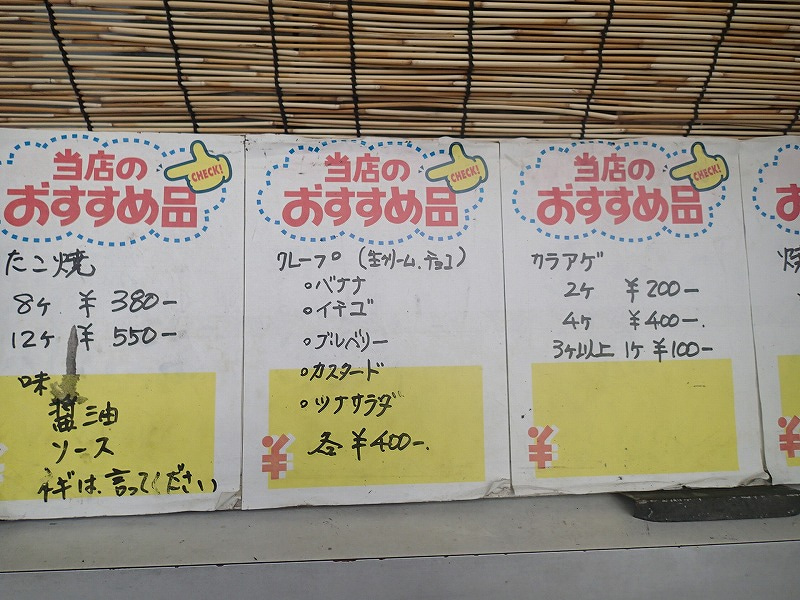 当店の
おすすめ品
CHECK!
たこ焼
8ヶ ¥ 380-
12ヶ ¥ 550-
味
醤油
ソース
ネギは、言ってください
当店の
おすすめ品
CHECK!
クレープ (生クリーム、チョコ)
○バナナ
○イチゴ
○ブルベリー
○カスタード
○ツナサラダ
各 ¥400-.
¥
当店の
おすすめ品
CHECK!
カラアゲ
2ヶ ¥200-
4ヶ ¥400-.
3ヶ以上 1ヶ ¥100-
¥
当
お
¥